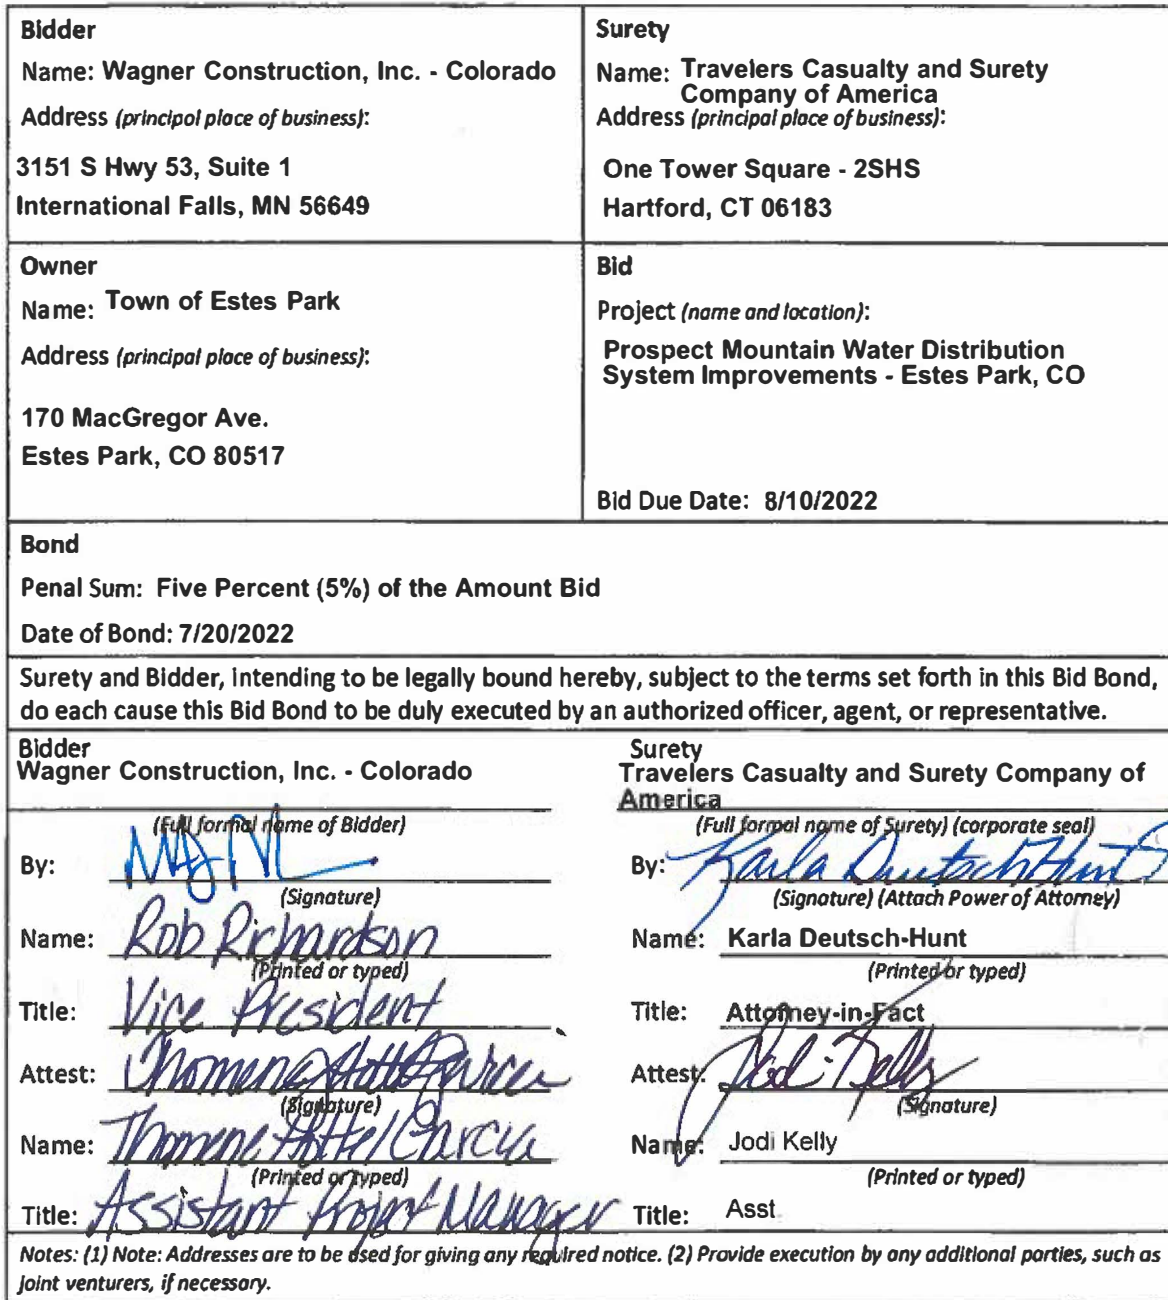 Bidder
Name: Wagner Construction, Inc. - Colorado
Address (principal place of business):
3151 S Hwy 53, Suite 1
International Falls, MN 56649
Surety
Name: Travelers Casualty and Surety
Company of America
Address (principal place of business):
One Tower Square - 2SHS
Hartford, CT 06183
Owner
Name: Town of Estes Park
Address (principal place of business):
170 MacGregor Ave.
Estes Park, CO 80517
Bid
Project (name and location):
Prospect Mountain Water Distribution
System Improvements - Estes Park, CO
Bid Due Date: 8/10/2022
Bond
Penal Sum: Five Percent (5%) of the Amount Bid
Date of Bond: 7/20/2022
Surety and Bidder, intending to be legally bound hereby, subject to the terms set forth in this Bid Bond,
do each cause this Bid Bond to be duly executed by an authorized officer, agent, or representative.
Bidder
Wagner Construction, Inc. - Colorado
(Full formal name of Bidder)
By:
(Signature)
Name: Rob Richardson
(Printed or typed)
Title: Vice President
Attest:
(Signature)
Name: Thomene Hottel Garcia
(Printed or typed)
Title: Assistant Project Manager
Surety
Travelers Casualty and Surety Company of
America
(Full formal name of Surety) (corporate seal)
By: Karla Deutsch-Hunt
(Signature) (Attach Power of Attorney)
Name: Karla Deutsch-Hunt
(Printed or typed)
Title: Attorney-in-Fact
Attest: Jodi Kelly
(Signature)
Name: Jodi Kelly
(Printed or typed)
Title: Asst
Notes: (1) Note: Addresses are to be used for giving any required notice. (2) Provide execution by any additional parties, such as
joint venturers, if necessary.